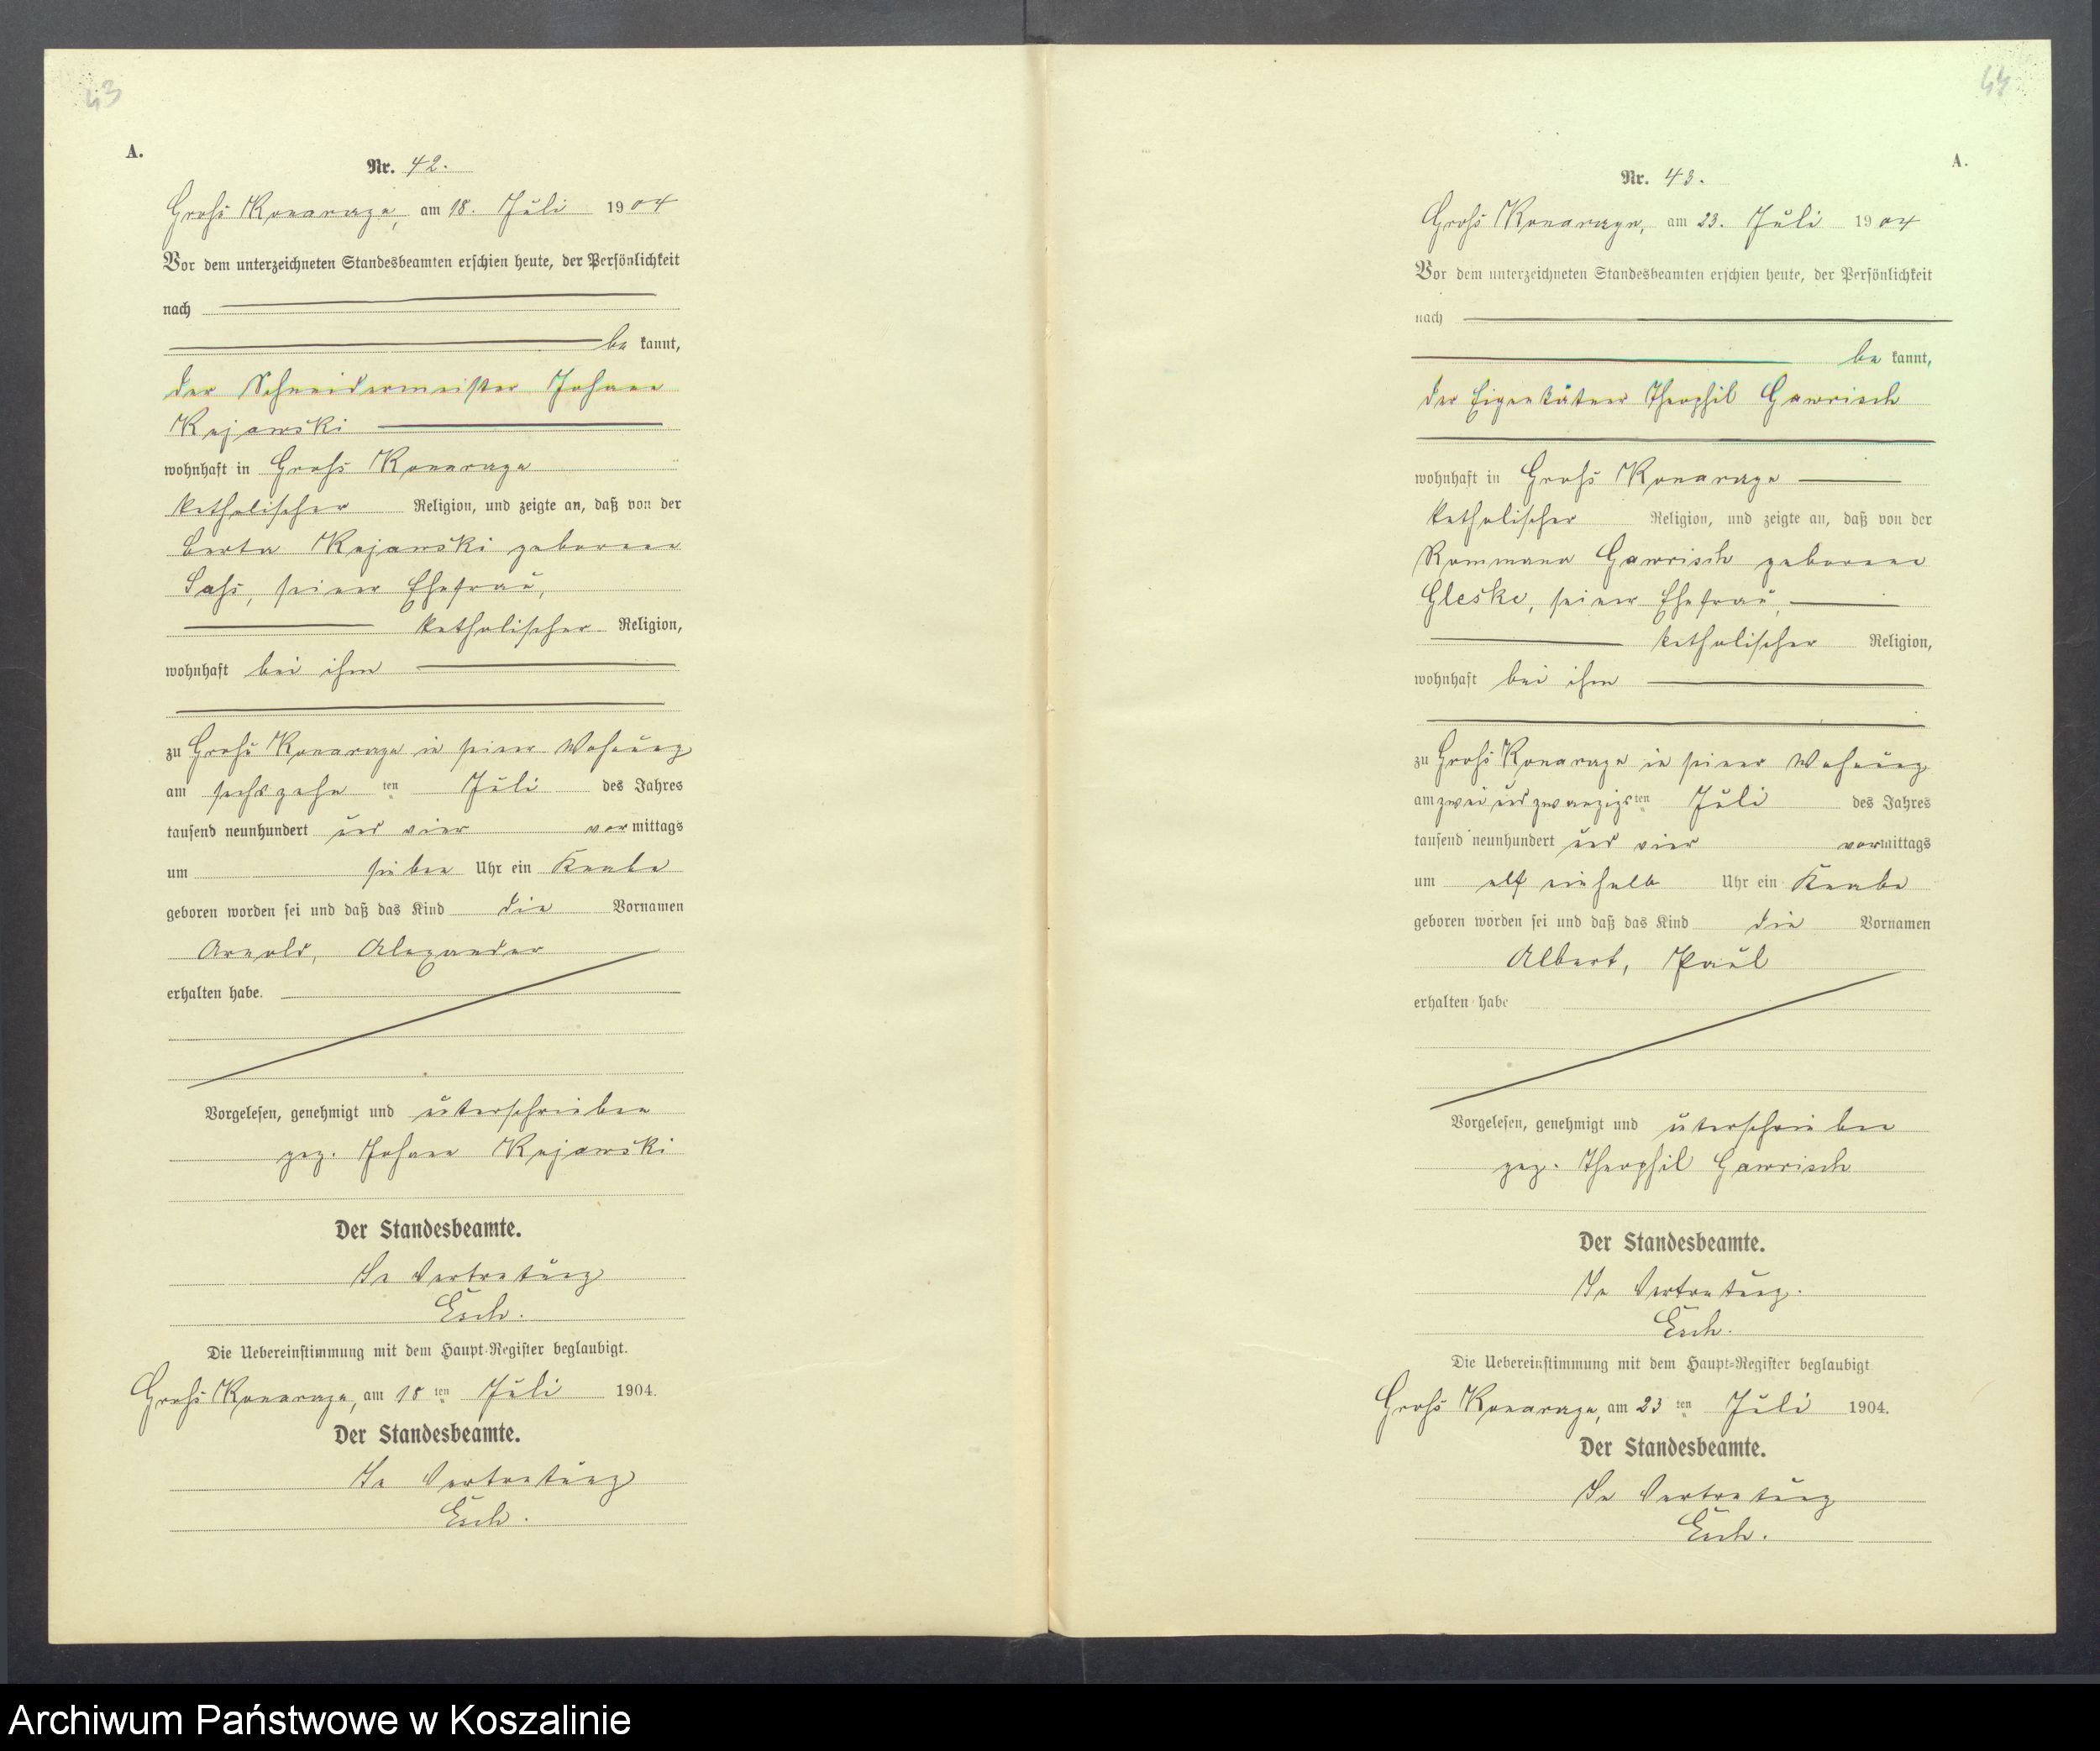 43
A.
Nr. 42.
Groß Konarzyn, am 18. Juli 1904
Vor dem unterzeichneten Standesbeamten erschien heute, der Persönlichkeit
nach
be kannt,
der Schneidermeister Johann
Kujawski
wohnhaft in Groß Konarzyn
katholischer Religion, und zeigte an, daß von der
Berta Kujawski geborenen
Saß, seiner Ehefrau,
katholischer Religion,
wohnhaft bei ihm
zu Groß Konarzyn in seiner Wohnung
am sechszehn ten Juli des Jahres
tausend neunhundert und vier vormittags
um sieben Uhr ein Knabe
geboren worden sei und daß das Kind die Vornamen
Arnold, Alexander
erhalten habe.
Vorgelesen, genehmigt und unterschrieben
gez. Johann Kujawski
Der Standesbeamte.
In Vertretung
Esch.
Die Uebereinstimmung mit dem Haupt-Register beglaubigt.
Groß Konarzyn, am 18 ten Juli 1904.
Der Standesbeamte.
In Vertretung
Esch.
44
A.
Nr. 43.
Groß Konarzyn, am 23. Juli 1904
Vor dem unterzeichneten Standesbeamten erschien heute, der Persönlichkeit
nach
be kannt,
der Eigenkätner Theophil Gawrisch
wohnhaft in Groß Konarzyn
katholischer Religion, und zeigte an, daß von der
Gawrisch geborenen
Gleske, seiner Ehefrau,
katholischer Religion,
wohnhaft bei ihm
zu Groß Konarzyn in seiner Wohnung
am zwei und zwanzigsten Juli des Jahres
tausend neunhundert und vier vormittags
um elf einhalb Uhr ein Knabe
geboren worden sei und daß das Kind die Vornamen
Albert, Paul
erhalten habe
Vorgelesen, genehmigt und unterschrieben
gez. Theophil Gawrisch
Der Standesbeamte.
In Vertretung.
Esch.
Die Uebereinstimmung mit dem Haupt-Register beglaubigt
Groß Konarzyn, am 23 ten Juli 1904.
Der Standesbeamte.
In Vertretung
Esch.
Archiwum Państwowe w Koszalinie